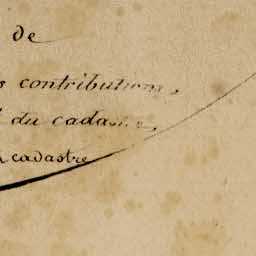 de
s contributions,
du cadastre,
cadastre